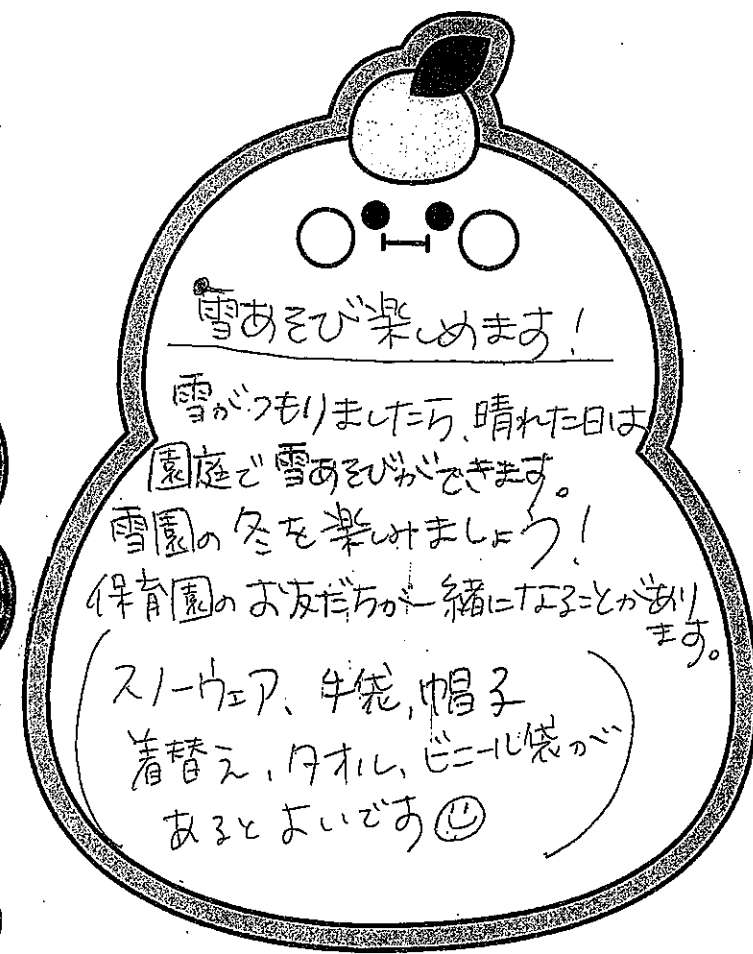 雪あそび楽しめます!
雪がつもりましたら、晴れた日は
園庭で雪あそびができます。
雪園の冬を楽しみましょう!
保育園のお友だちが一緒になることがあり
ます。
スノーウェア、手袋、帽子
着替え、タオル、ビニール袋が
あるとよいです